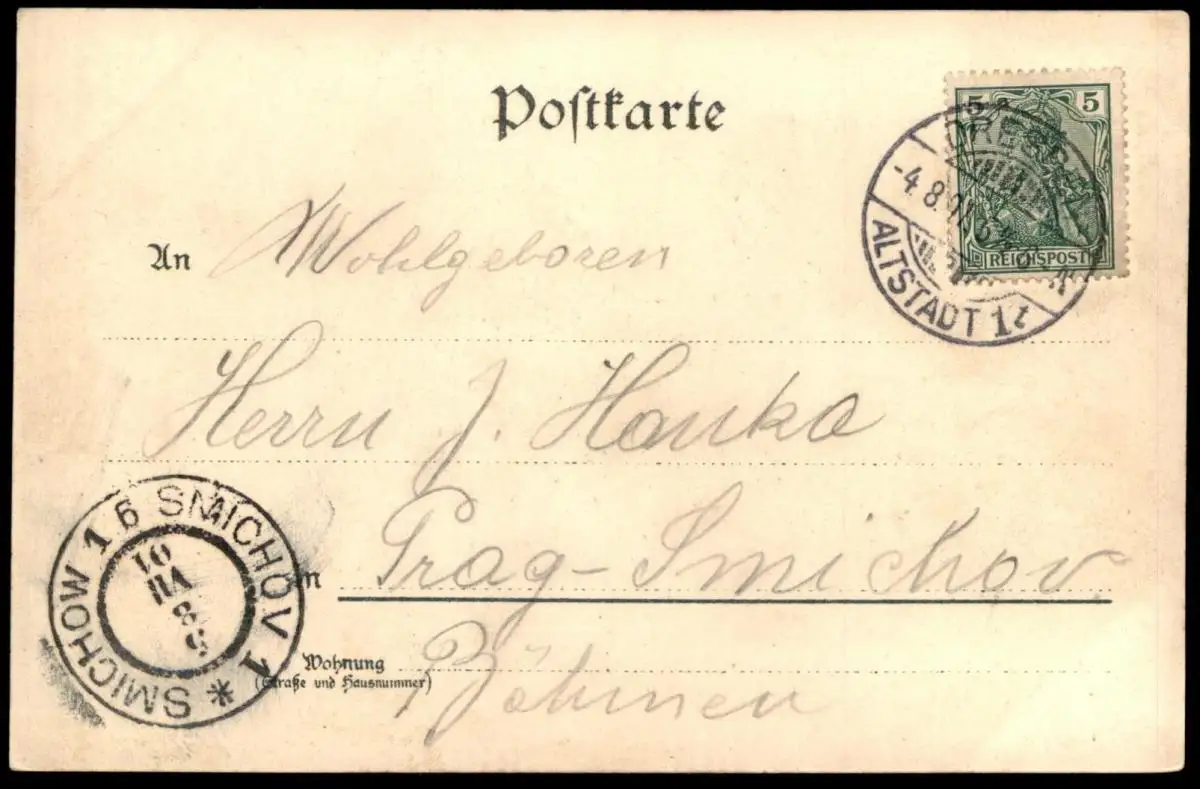 Postkarte
5 5
REICHSPOST
-4.8.
ALTSTADT
An Wohlgeboren
Herrn J. Hanka
in Prag-Smichov
Wohnung
(Straße und Hausnummer)
Böhmen
SMICHOV 1 * SMICHOW 1